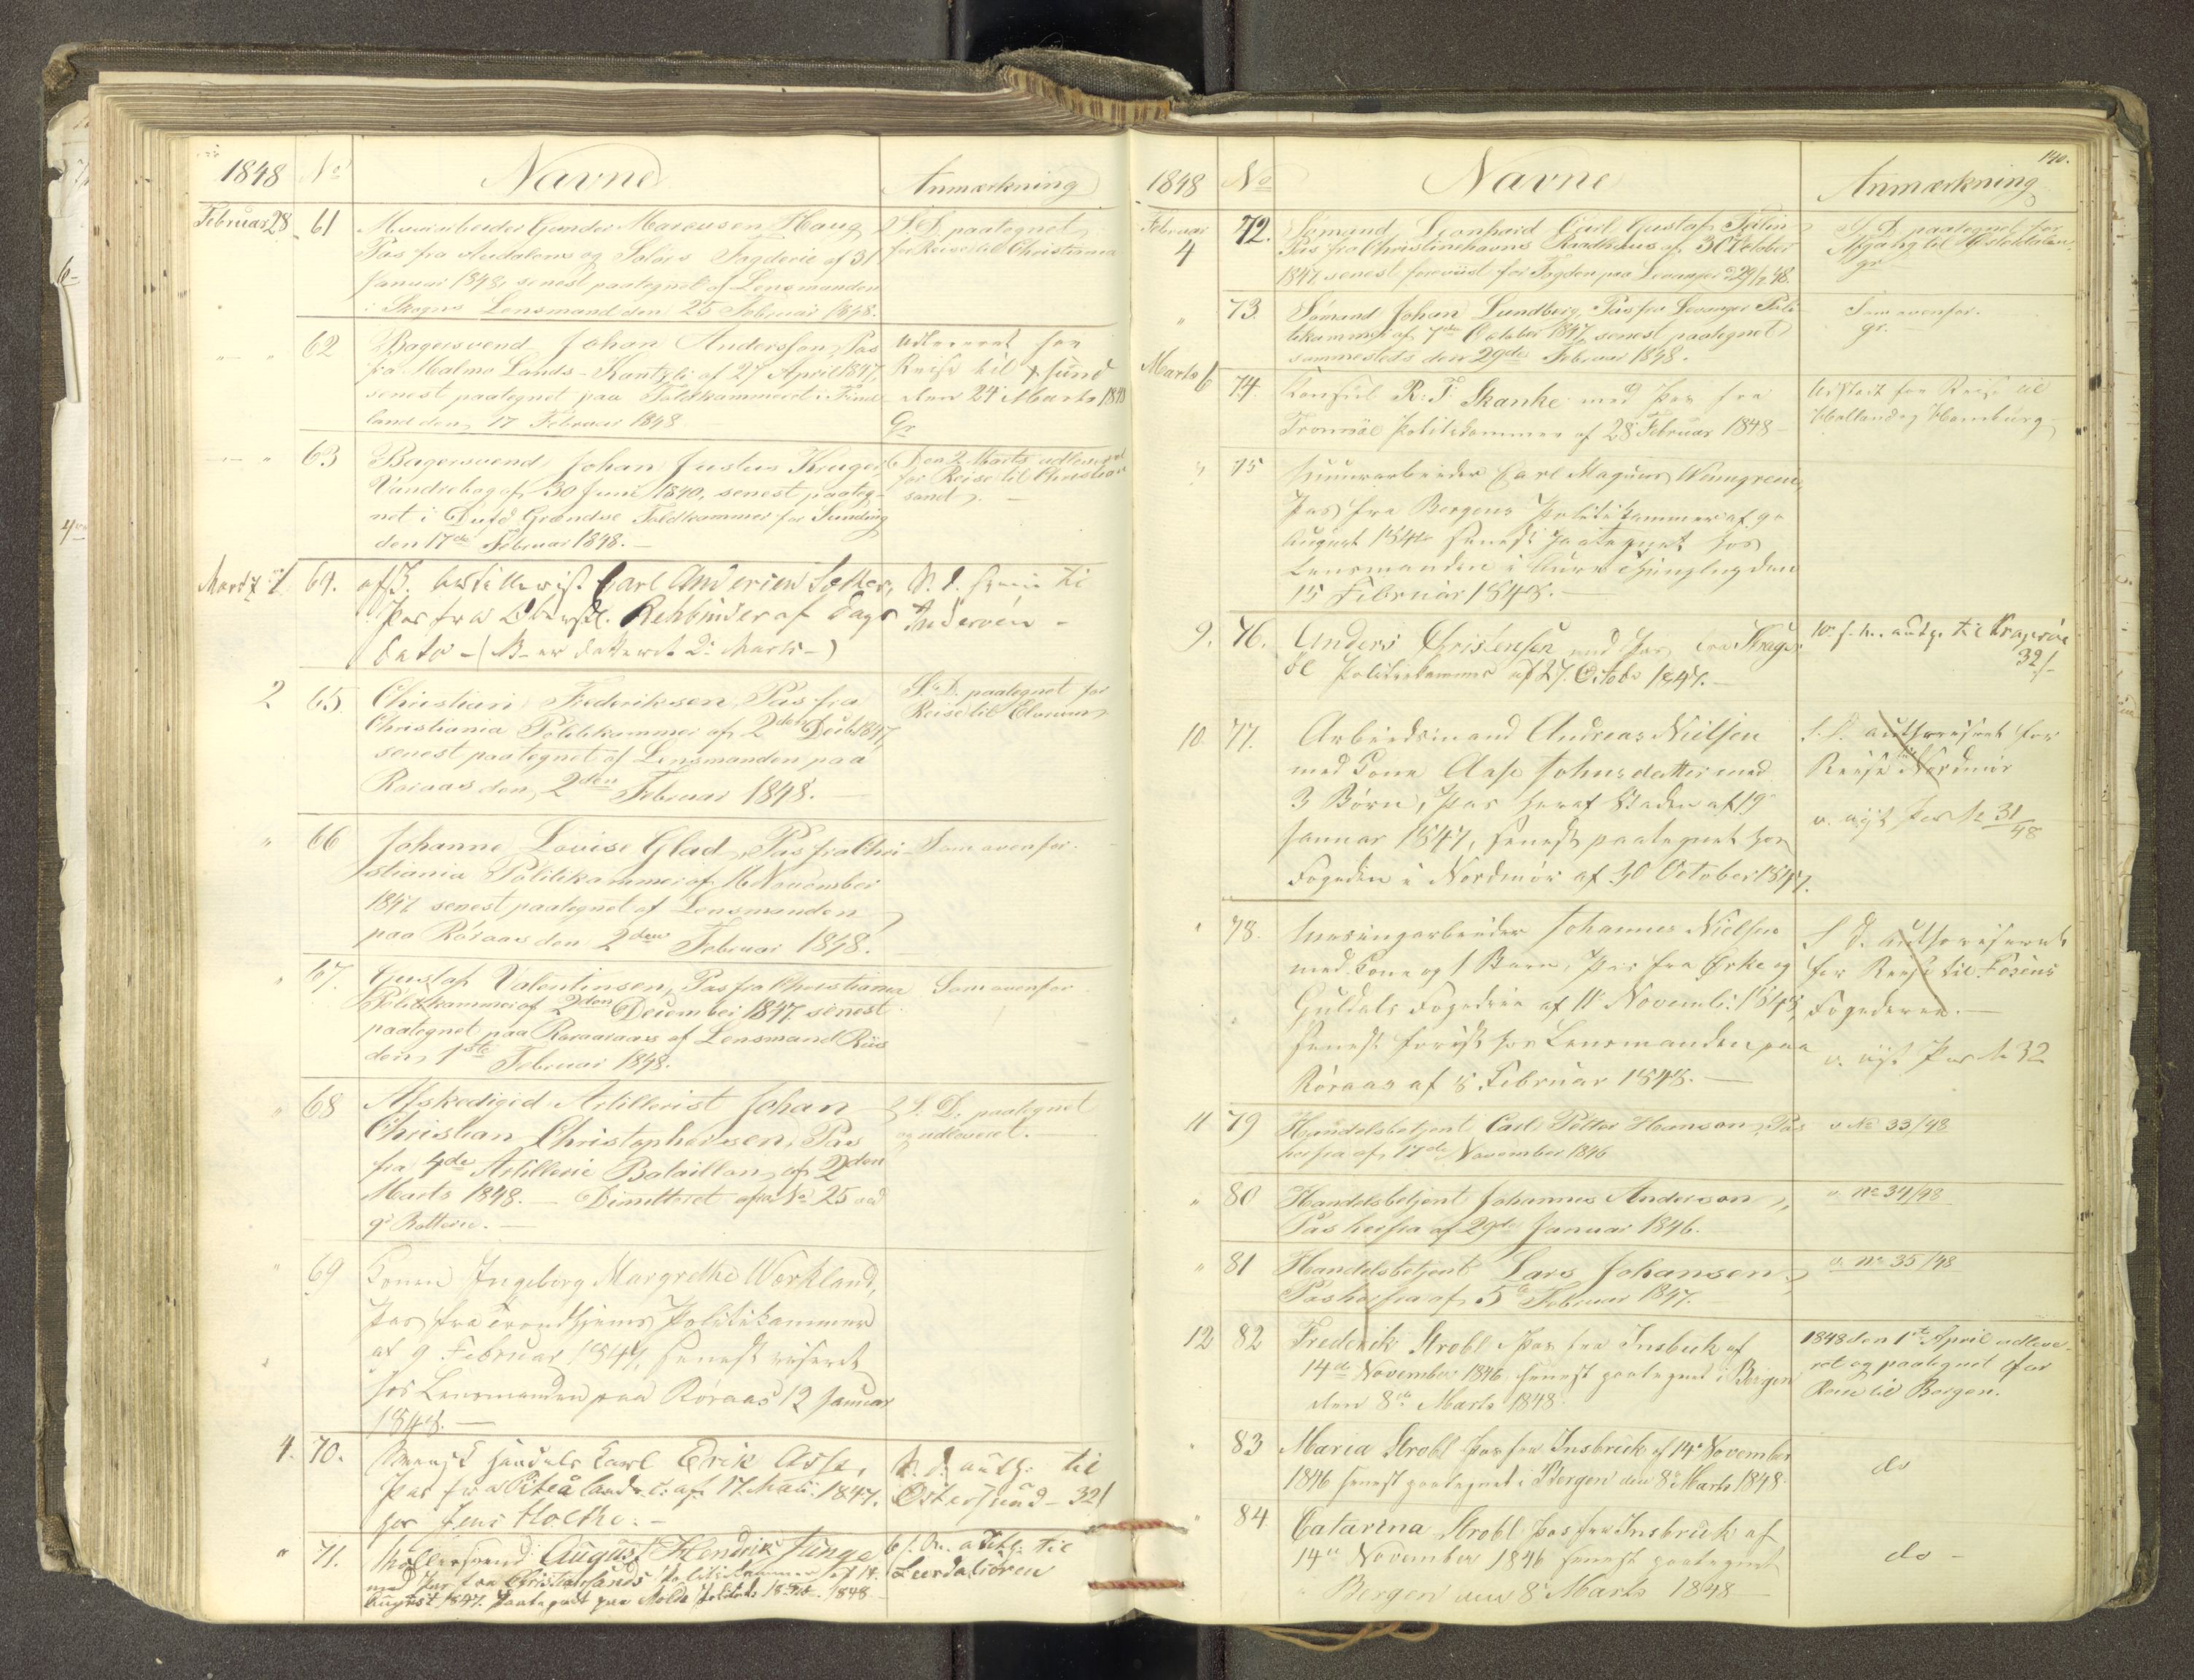 1848 No Navne Anmærkning
Februar 28 61 Gunder Marcusen Haug S. D. paategnet
Pas fra og Solørs Fogderie af 31 for Reise til Christiania
Januar 1848, senest paategnet af Lensmanden
i Skogns Lensmand den 25 Februar 1848.
" " 62 Bagersvend Johan Andersson, Pas
fra Malmø Lands-Kantzeli af 27 April 1847, Reise til sund
senest paategnet paa Toldkammeret i den 24 Marts 1848
land den 17 Februar 1848 Gr
" " 63 Bagersvend Johan Justus Kruger Den 2 Marts udleveret
Vandrebog af 30 Juni 1840, senest paateg- for Reise til Christian
net i Dufed Grændse Toldkammer for sand. —
den 17de Februar 1848. —
Marts 1. 64. Carl Andersen
Pas fra Rehbinder af Dags Inderøen -
Dato - ( 2. Marts - )
2 65 Christian Frederiksen, Pas fra S. D. paategnet for
Christiania Politikammer af 2den Decbr 1847, Reise til Elverum
senest paategnet af Lensmanden paa
Røraas den 2den Februar 1848. —
" 66 Johanne Lovise Glad, Pas fra Chri- Som ovenfor.
stiania Politikammer af 16 November
1847 senest paategnet af Lensmanden
paa Røraas den 2den Februar 1848.
" 67. Gustaf Valentinsen, Pas fra Christiania Som ovenfor
Politikammer af 2den December 1847 senest
paategnet paa Røraas af Lensmand Riis
den 1ste Februar 1848.
" 68 Afskediget Artillerist Johan S. D. paategnet
Christian Christophersen, Pas og udleveret. —
fra 4de Artillerie Bataillon af 2den
Marts 1848. — Dimitteret No 25 ved
Batterie. —
" 69 Konen Ingeborg Margrethe Werkland,
Pas fra Trondhjems Politikammer
af 9 Februar 1847, senest viseret
hos Lensmanden paa Røraas 12 Januar
1848. —
4. 70. Svensk Handels Karl Erik til
Pas fra Piteå af 17. 1847. Østersund - 32
Jens Holthe. -
" 71. Møllersvend August Hendrik Junge til
med Pas fra Christiansands Politikammer af 14. Leerdalsøren
August 1847. Paategnet paa Molde 1848

140.
1848 No Navne Anmærkning
Februar 72. Sømand Leonhard Carl Gustaf S. D. paategnet for
4 Pas fra Christinehavns Raadhuus af 30 October Afgang til
1847 senest foreviist for Fogden paa Levanger d 29/2 48. gr
" 73. Sømand Johan Lundberg, Pas fra Levanger Poli- Som ovenfor.
tikammer af 7de October 1847, senest paategnet gr.
sammesteds den 29de Februar 1848.
Marts 6 74. Consul R. F. Skanke med Pas fra for Reise til
Tromsøe Politikammer af 28 Februar 1848 - Holland og Hamburg
" 75 Carl Magnus Wenngreen,
Pas fra Bergens Politikammer af 9de
August 184 senest paategnet hos
Lensmanden i den
15 Februar 1848. —
9. 76. Anders Christensen med Pas fra Krager- til Kragerøe
øe Politiekammer af 27. October 1847. — 32
10. 77. Arbeidsmand Andreas Nielsen S. D. authoriseret for
med Kone Aase Johnsdatter med Reise Nordmør
3 Børn, Pas heraf Staden af 19 v. nyt Pas No 31/48
Januar 1847, senest paategnet hos
Fogden i Nordmør af 30 October 1847.
" 78. arbeider Johannes Nielsen S. D. authoriseret
med Kone og 1 Barn, Pas fra Ørke og for Reise til Fosens
Guldals Fogderie af 11 Novemb. 184 Fogderie. —
senest hos Lensmanden paa v. nyt Pas No 32
Røraas af 8 Februar 1848. —
11 79 Handelsbetjent Carl Petter Hanson, Pas v No 33/48
herfra af 17de November 1846
" 80 Handelsbetjent Johannes Anderson, v No 34/48
Pas herfra af 29de Januar 1846.
" 81 Handelsbetjent Lars Johansen, v. No 35/48
Pas herfra af 5te Februar 1847.
12 82 Frederik Strobl Pas fra Insbruk af 1848 den 1ste April udleve-
14de November 1846, senest paategnet i Bergen ret og paategnet for
den 8de Marts 1848. Reise til Bergen.
" 83 Maria Strobl Pas fra Insbruck af 14de November do
1846 senest paategnet i Bergen den 8de Marts 1848.
" 84 Catarina Strobl Pas fra Insbruck af
14de November 1846 senest paategnet do -
Bergen den 8de Marts 1848 —